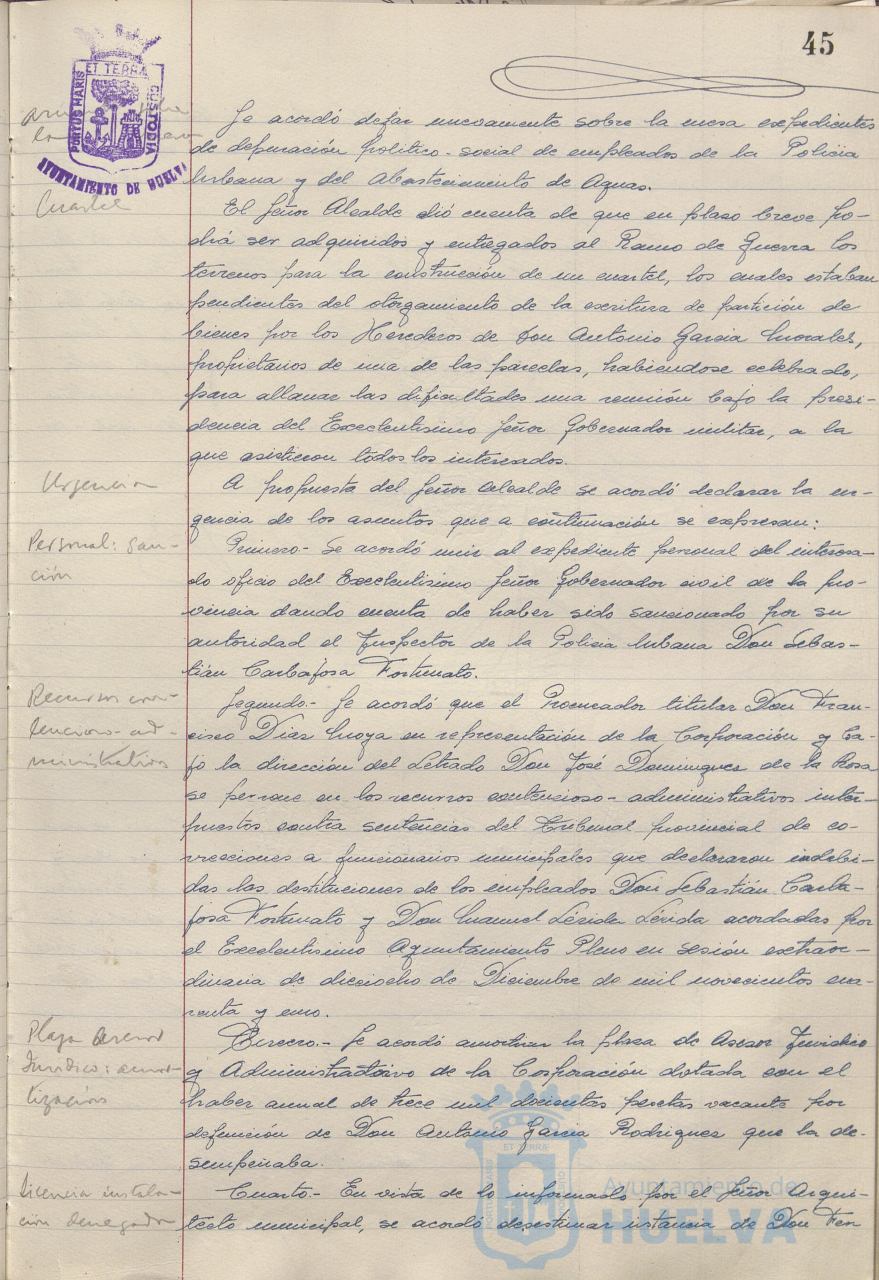 45
ET TERRA
PORTUS MARIS
CUSTODIA
AYUNTAMIENTO DE HUELVA
Se acordó dejar nuevamente sobre la mesa expedientes
de depuración político-social de empleados de la Policia
Urbana y del Abastecimiento de Aguas.
Cuartel
El Señor Alcalde dió cuenta de que en plaso breve po-
drá ser adquiridos y entregados al Ramo de Guerra los
terrenos para la construcción de un cuartel, los cuales estaban
pendientes del otorgamiento de la escritura de partición de
bienes por los Herederos de Don Antonio Garcia Morales,
propietarios de una de las parcelas, habiendose celebrado,
para allanar las dificultades una reunión bajo la presi-
dencia del Excelentisimo Señor Gobernador militar, a la
que asistieron todos los interesados.
Urgencia
A propuesta del Señor Alcalde se acordó declarar la ur-
gencia de los asuntos que a continuación se expresan:
Personal: San-
ción
Primero.- Se acordó unir al expediente personal del interesa-
do oficio del Excelentisimo Señor Gobernador civil de la pro-
vincia dando cuenta de haber sido sancionado por su
autoridad el Inspector de la Policia Urbana Don Sebas-
tián Carbajosa Fortunato.
Recursos con-
tencioso-ad-
ministrativos
Segundo.- Se acordó que el Procurador titular Don Fran-
cisco Diaz Moya en representación de la Corporación y ba-
jo la dirección del Letrado Don José Dominguez de la Rosa
se persone en los recursos contencioso-administrativos inter-
puestos contra sentencias del Tribunal provincial de co-
rrecciones a funcionarios municipales que declararon indebi-
das las destituciones de los empleados Don Sebastián Carba-
josa Fortunato y Don Manuel Lérida Lérida acordadas por
el Excelentisimo Ayuntamiento Pleno en sesión extraor-
dinaria de dieciocho de Diciembre de mil novecientos cua-
renta y uno.
Plaza Asesor
Jurídico: amor-
tización
Tercero.- Se acordó amortizar la plaza de Asesor Juridico
y Administrativo de la Corporación dotada con el
haber anual de trece mil docientas pesetas vacante por
defunción de Don Antonio Garcia Rodriguez que la de-
sempeñaba.
Licencia instala-
ción denegada
Cuarto.- En vista de lo informado por el Señor Arqui-
tecto municipal, se acordó desestimar instancia de Don Fer
Ayuntamiento de
HUELVA